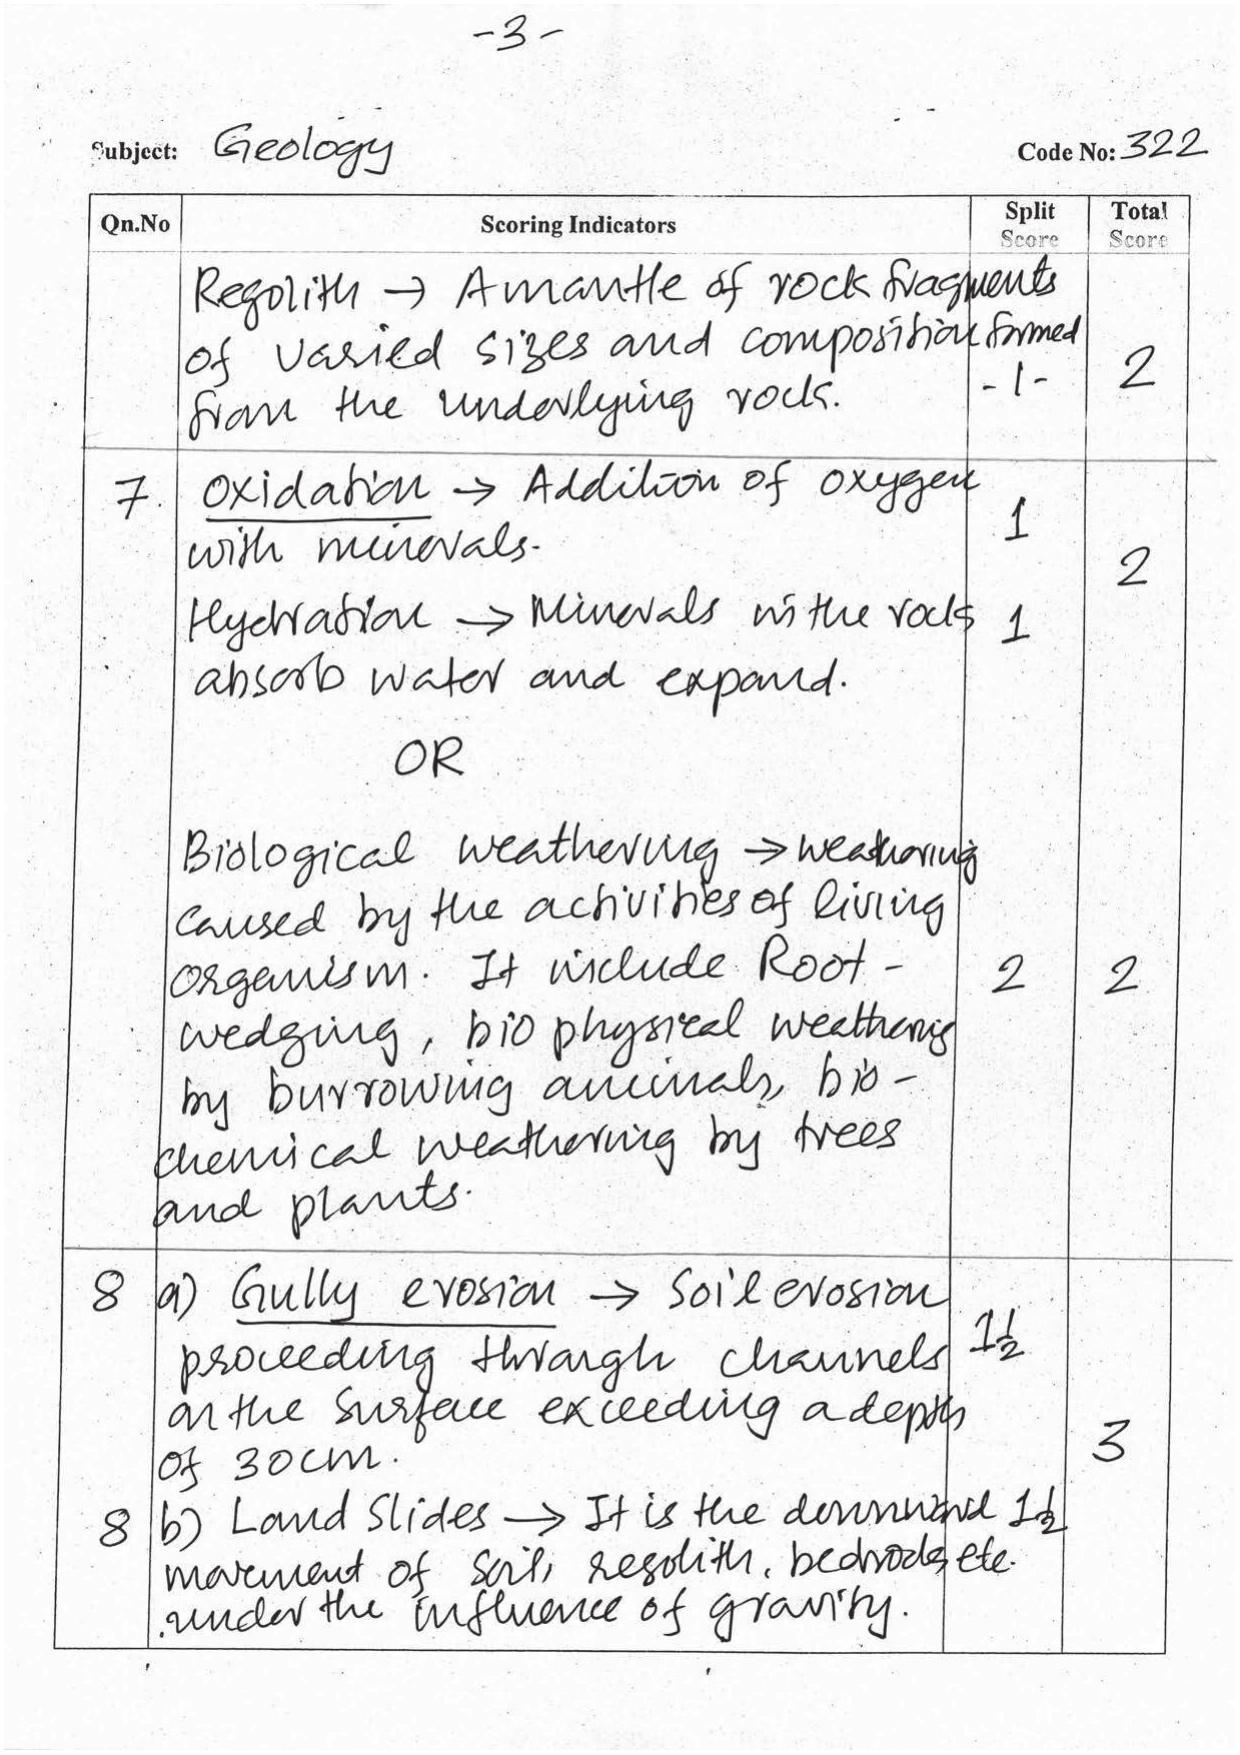 -3-
Subject: Geology Code No: 322
Qn.No Scoring Indicators Split Score Total Score
Regolith → A mantle of rock fragments
of varied sizes and composition formed
from the underlying rock. -1- 2
7. Oxidation → Addition of oxygen
with minerals. 1
2
Hydration → Minerals in the rocks 1
absorb water and expand.
OR
Biological weathering → weathering
caused by the activities of living
organism. It include Root - 2 2
wedging, bio physical weathering
by burrowing animals, bio -
chemical weathering by trees
and plants.
8 a) Gully erosion → Soil erosion
proceeding through channels 1½
on the surface exceeding a depth
of 30cm. 3
8 b) Land Slides → It is the downward 1½
movement of soil, regolith, bedrocks etc.
under the influence of gravity.